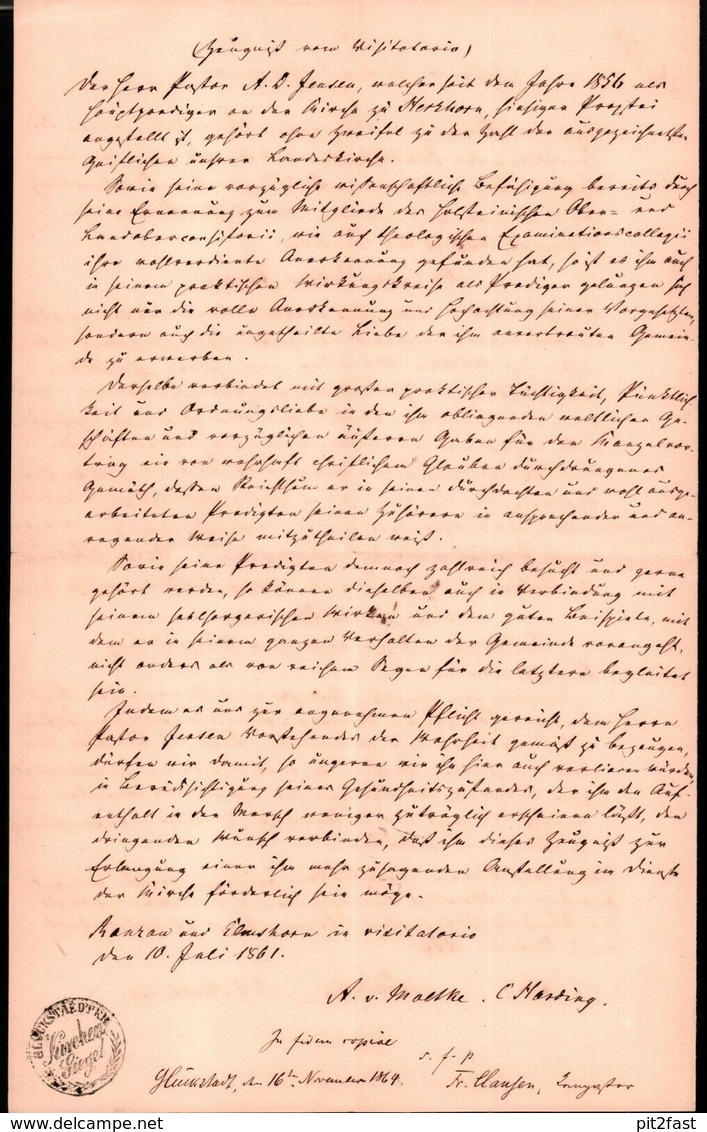 (Zeugniß vom Visitatorio)
Der Herr Pastor A. D. Jensen, welcher seit dem Jahre 1856 als
Hauptprediger an der Kirche zu Herzhorn, hiesiger Propstei
angestellt ist, gehört ohne Zweifel zu der Zahl der ausgezeichnetsten
Geistlichen unsrer Landeskirche.
Sowie seine vorzügliche wissenschaftliche Befähigung bereits durch
seine Ernennung zum Mitgliede des Holsteinischen Ober- und
Landoberconsistorii, wie auch theologischen Examinationscollegii
ihre wohlverdiente Anerkennung gefunden hat, so ist es ihm auch
in seinem praktischen Wirkungskreise als Prediger gelungen sich
nicht nur die volle Anerkennung und Hochachtung seiner Vorgesetzten,
sondern auch die ungetheilte Liebe der ihm anvertrauten Gemein-
de zu erwerben.
Derselbe verbindet mit großer praktischer Tüchtigkeit, Pünktlich
keit und Ordnungsliebe in den ihm obliegenden weltlichen Ge-
schäften und vorzüglichen äußeren Gaben für den Kanzelvor-
trag ein von wahrhaft christlichem Glauben durchdrungenes
Gemüth, dessen Reichthum er in seinen durchdachten und wohl ausge-
arbeiteten Predigten seinen Zuhörern in ansprechender und an-
regender Weise mitzutheilen weiß.
Sowie seine Predigten demnach zahlreich besucht und gerne
gehört werden, so können dieselben auch in Verbindung mit
seinem seelsorgerischen Wirken und dem guten Beispiele, mit
dem er in seinem ganzen Verhalten der Gemeinde vorangeht,
nicht anders als von reichem Segen für die letztere begleitet
sein.
Indem es uns zur angenehmen Pflicht gereicht, dem Herrn
Pastor Jensen Vorstehendes der Wahrheit gemäß zu bezeugen,
dürfen wir damit, so ungerne wir ihn hier auch verlieren würden,
in Berücksichtigung seines Gesundheitszustandes, der ihm den Auf-
enthalt in der Marsch weniger zuträglich erscheinen läßt, den
dringenden Wunsch verbinden, daß ihm dieses Zeugniß zur
Erlangung einer ihm mehr zusagenden Anstellung im Dienste
der Kirche förderlich sein möge.
Ranzau und Elmshorn in visitatorio
den 10. Juli 1861.
A. v. Moltke. C Harding.
In fidem copiae
s. f. p
Glückstadt, den 16ten November 1864. Fr. Clausen,
GLÜCKSTAEDTER
Kirchen
Siegel
pit2fast